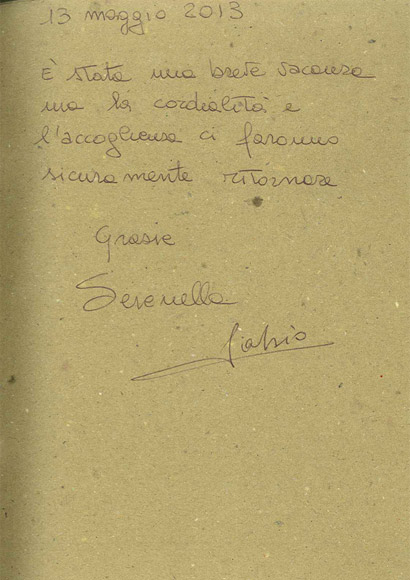 13 maggio 2013
È stata una breve vacanza
ma la cordialità e
l'accoglienza ci faranno
sicuramente ritornare
Grazie
Serenella
Fabio